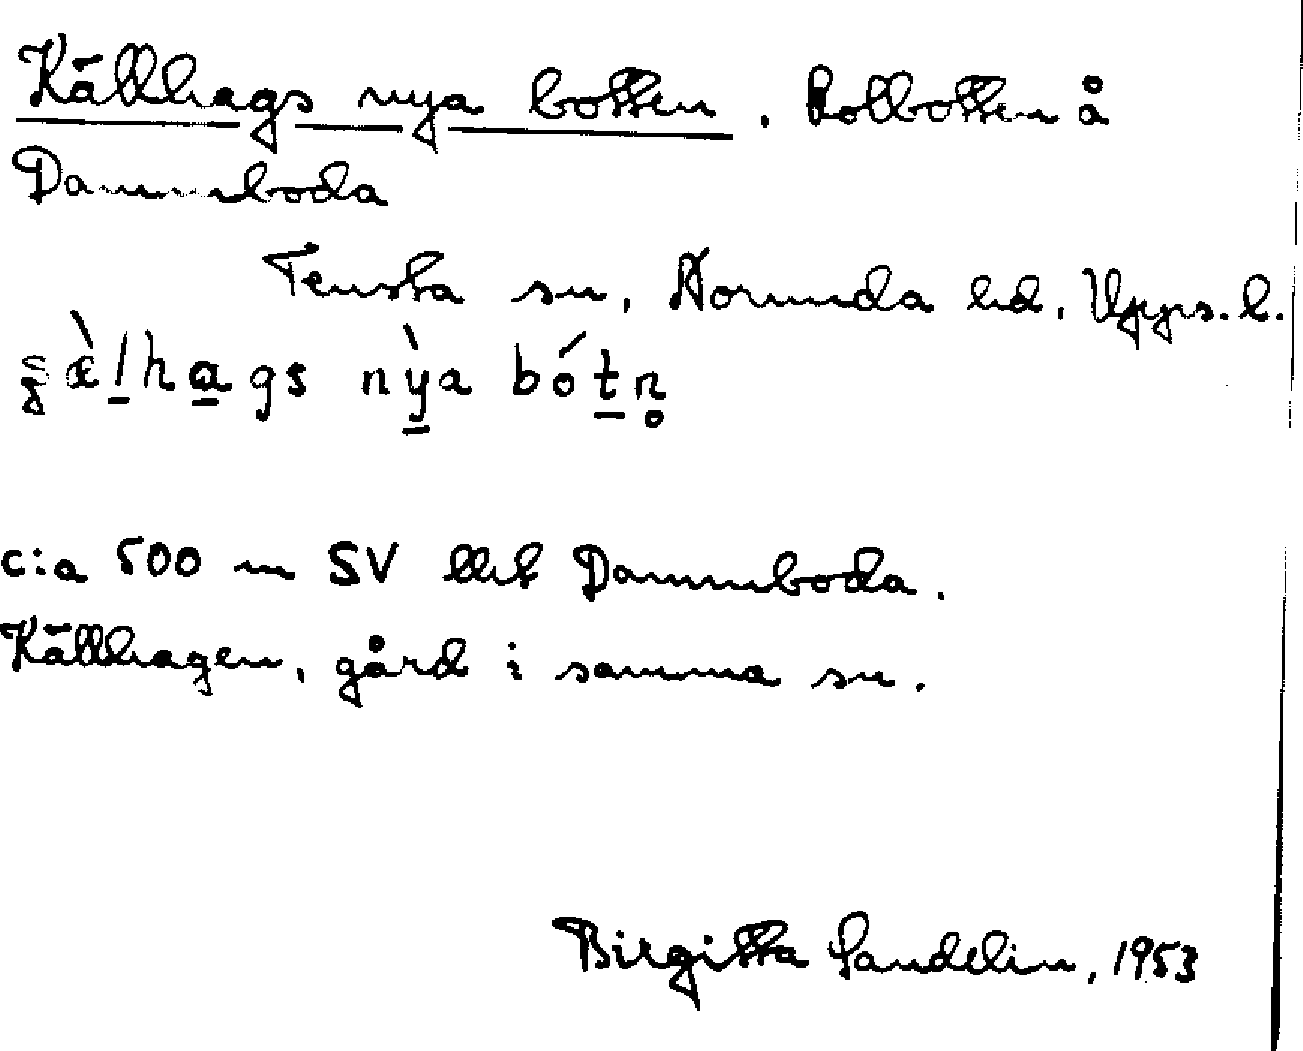 Källhags nya botten. Kolbotten å
Dammboda
Tensta sn, Norunda hd, Upps. l.
nỳa bótn̥
c:a 500 m SV Dammboda.
Källhagen, gård i samma sn.
Birgitta Sandelin, 1953